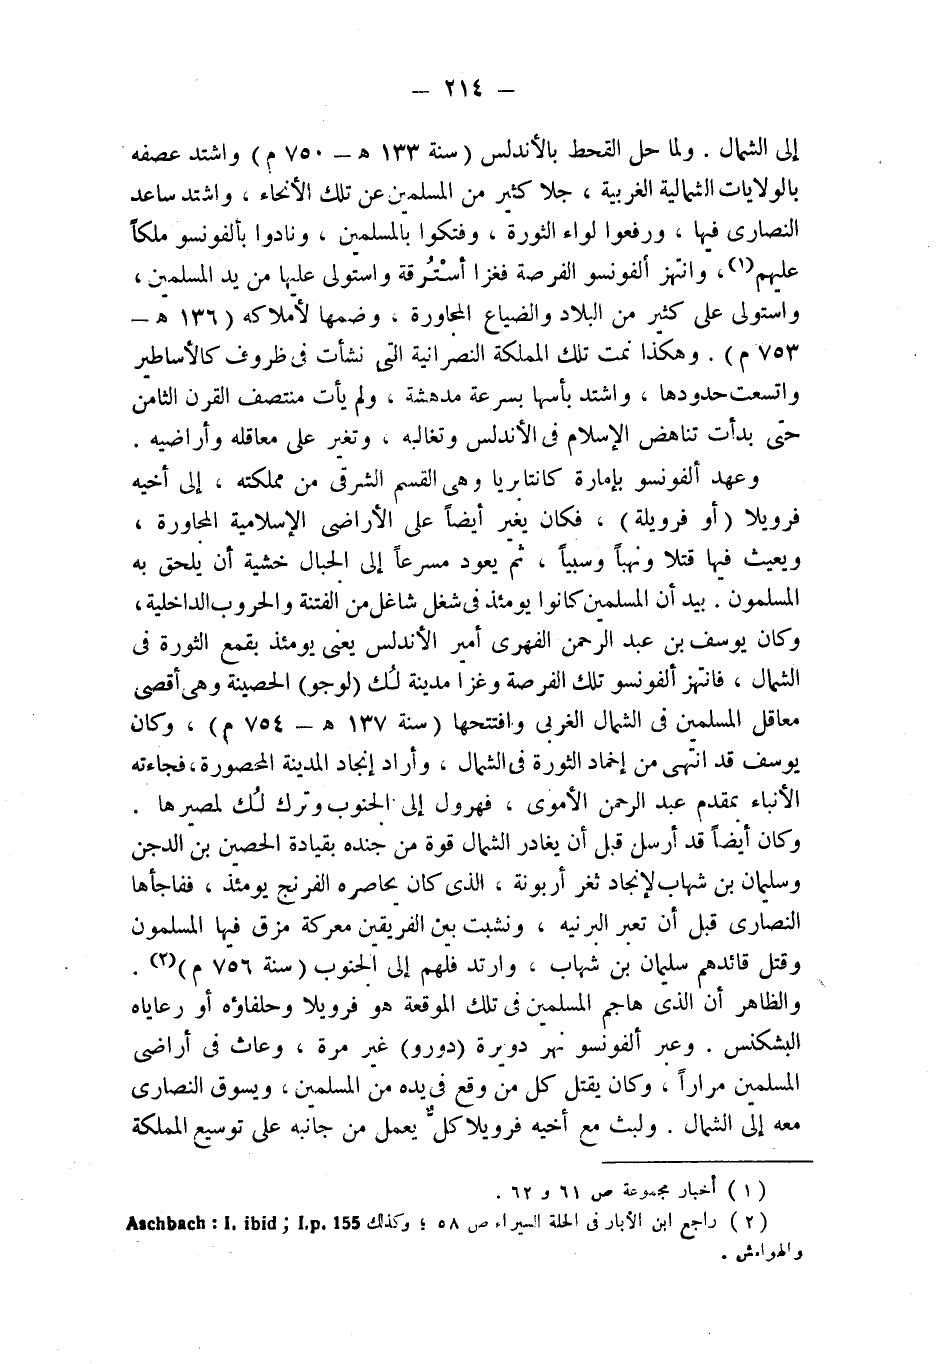 — ٢١٤ —
إلى الشمال . ولما حل القحط بالأندلس ( سنة ١٣٣ ه – ٧٥٠ م ) واشتد عصفه
بالولايات الشمالية الغربية ، جلا كثير من المسلمين عن تلك الأنحاء ، واشتد ساعد
النصارى فيها ، ورفعوا لواء الثورة ، وفتكوا بالمسلمين ، ونادوا بألفونسو ملكاً
عليهم(١)، وانتهز ألفونسو الفرصة فغزا أسْتُرقة واستولى عليها من يد المسلمين ،
واستولى على كثير من البلاد والضياع المجاورة ، وضمها لأملاكه ( ١٣٦ ه –
٧٥٣ م ) . وهكذا نمت تلك المملكة النصرانية التى نشأت فى ظروف كالأساطير
واتسعت حدودها ، واشتد بأسها بسرعة مدهشة ، ولم يأت منتصف القرن الثامن
حتى بدأت تناهض الإسلام فى الأندلس وتغالبه ، وتغير على معاقله وأراضيه .
وعهد ألفونسو بإمارة كانتابريا وهى القسم الشرقى من مملكته ، إلى أخيه
فرويلا ( أو فرويلة ) ، فكان يغير أيضاً على الأراضى الإسلامية المجاورة ،
ويعيث فيها قتلا ونهباً وسبياً ، ثم يعود مسرعاً إلى الجبال خشية أن يلحق به
المسلمون . بيد أن المسلمين كانوا يومئذ فى شغل شاغل من الفتنة والحروب الداخلية ،
وكان يوسف بن عبد الرحمن الفهرى أمير الأندلس يعنى يومئذ بقمع الثورة فى
الشمال ، فانتهز ألفونسو تلك الفرصة وغزا مدينة لُك (لوجو) الحصينة وهى أقصى
معاقل المسلمين فى الشمال الغربى وافتتحها ( سنة ١٣٧ ه – ٧٥٤ م ) ، وكان
يوسف قد انتهى من إخماد الثورة فى الشمال ، وأراد إنجاد المدينة المحصورة ، فجاءته
الأنباء بمقدم عبد الرحمن الأموى ، فهرول إلى الجنوب وترك لُك لمصيرها .
وكان أيضاً قد أرسل قبل أن يغادر الشمال قوة من جنده بقيادة الحصين بن الدجن
وسليمان بن شهاب لإنجاد ثغر أربونة ، الذى كان يحاصره الفرنج يومئذ ، ففاجأها
النصارى قبل أن تعبر البرنيه ، ونشبت بين الفريقين معركة مزق فيها المسلمون
وقتل قائدهم سليمان بن شهاب ، وارتد فلهم إلى الجنوب ( سنة ٧٥٦ م )(٢) .
والظاهر أن الذى هاجم المسلمين فى تلك الموقعة هو فرويلا وحلفاؤه أو رعاياه
البشكنس . وعبر ألفونسو نهر دويرة (دورو) غير مرة ، وعاث فى أراضى
المسلمين مراراً ، وكان يقتل كل من وقع فى يده من المسلمين ، ويسوق النصارى
معه إلى الشمال . ولبث مع أخيه فرويلا كلٌ يعمل من جانبه على توسيع المملكة
( ١ ) أخبار مجموعة ص ٦١ و ٦٢ .
( ٢ ) راجع ابن الأبار فى الحلة السيراء ص ٥٨ ؛ وكذلك Aschbach : I. ibid ; I.p. 155
والهوامش .